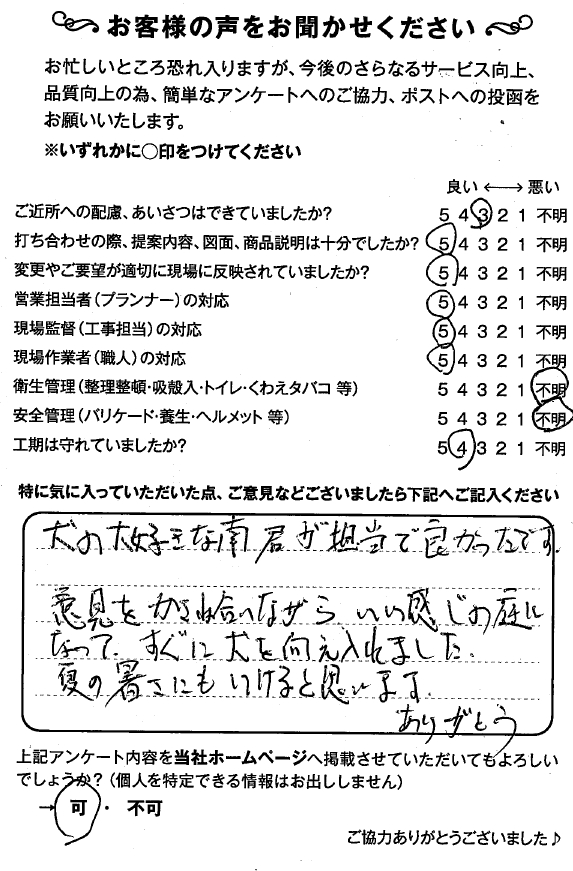 お客様の声をお聞かせください
お忙しいところ恐れ入りますが、今後のさらなるサービス向上、
品質向上の為、簡単なアンケートへのご協力、ポストへの投函を
お願いいたします。
※いずれかに〇印をつけてください
良い ←→ 悪い
ご近所への配慮、あいさつはできていましたか? 5 4 3 2 1 不明
打ち合わせの際、提案内容、図面、商品説明は十分でしたか? 5 4 3 2 1 不明
変更やご要望が適切に現場に反映されていましたか? 5 4 3 2 1 不明
営業担当者(プランナー)の対応 5 4 3 2 1 不明
現場監督(工事担当)の対応 5 4 3 2 1 不明
現場作業者(職人)の対応 5 4 3 2 1 不明
衛生管理(整理整頓・吸殻入・トイレ・くわえタバコ 等) 5 4 3 2 1 不明
安全管理(バリケード・養生・ヘルメット 等) 5 4 3 2 1 不明
工期は守れていましたか? 5 4 3 2 1 不明
特に気に入っていただいた点、ご意見などございましたら下記へご記入ください
犬の大好きな南君が担当で良かったです。
意見をかさね合いながら、いい感じの庭に
なって、すぐに犬を向え入れました。
夏の暑さにもいけると思います。
ありがとう
上記アンケート内容を当社ホームページへ掲載させていただいてもよろしい
でしょうか?(個人を特定できる情報はお出ししません)
→ 可 ・ 不可
ご協力ありがとうございました♪